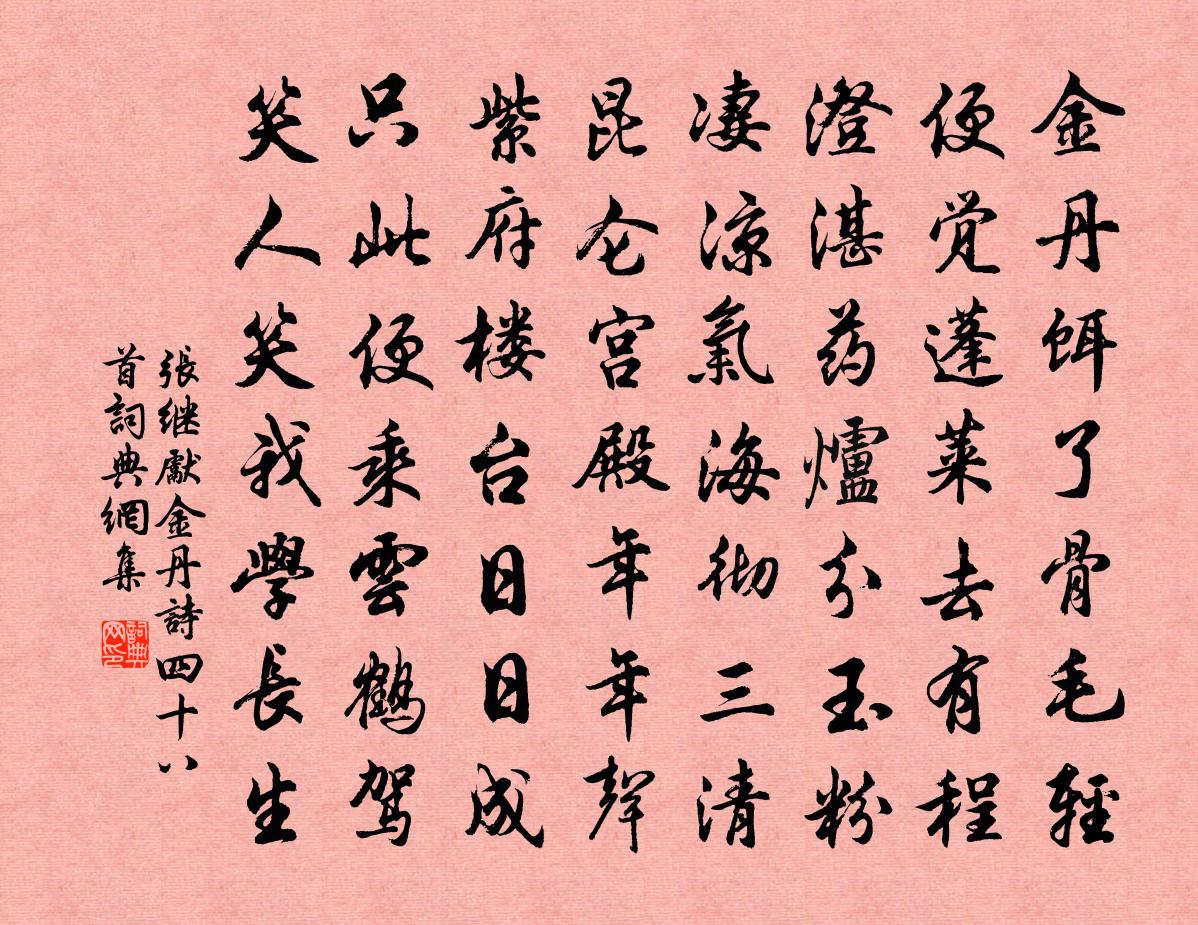 金丹饵了骨毛輕
便觉蓬莱去有程
澄湛药爐分玉粉
凄凉氣海彻三清
昆仑宫殿年年聳
紫府楼台日日成
只此便乘雲鹤驾
笑人笑我學長生
張继獻金丹詩四十八
首詞典網集
詞典
网印